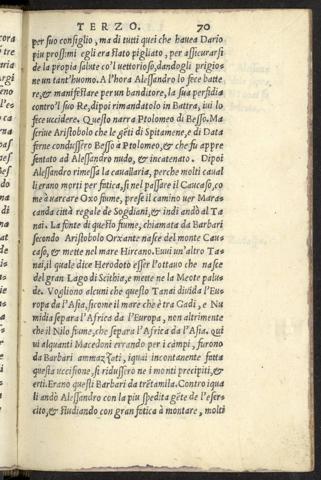 TERZO. 70
per suo consiglio, ma di tutti quei che hauea Dario
piu prossimi egli era stato pigliato, per assicurar si
de la propia salute co'l uettorioso, dandogli prigio
ne un tant'huomo. A l'hora Alessandro lo fece batte
re, & manifestare per un banditore, la sua perfidia
contro'l suo Re, dipoi rimandatolo in Battra, iui lo
fece uccidere. Questo narra Ptolomeo di Besso. Ma
scriue Aristobolo che le gēti di Spitamene, e di Data
ferne condussero Besso à Ptolomeo, & che fu appre
sentato ad Alessandro nudo, & incatenato. Dipoi
Alessandro rimessa la cauallaria, perche molti caual
li erano morti per fatica, si nel passare il Caucaso, co
me à uarcare Oxo fiume, prese il camino uer Mara-
canda città regale de Sogdiani, & indi andò al Ta
nai. La fonte di questo fiume, chiamata da Barbari
secondo Aristobolo Orxante nasce del monte Cau
caso, & mette nel mare Hircano. Euui un'altro Ta-
nai, il quale dice Herodoto esser l'ottauo che nasce
del gran Lago di Scithia, e mette ne la Meote palu
de. Vogliono alcuni che questo Tanai diuida l'Eu
ropa da l'Asia, si come il mare chè è tra Gadi, e Nu
midia separa l'Africa da l'Europa, non altrimente
che il Nilo fiume, che separa l'Africa da l'Asia. Qui
ui alquanti Macedoni errando per i cāmpi, furono
da Barbari ammazzati, i quai incontanente fatta
questa uccisione, si ridussero ne i monti precipiti, &
erti. Erano questi Barbari da trētamila. Contro i qua
li andò Alessandro con la piu spedita gēte de l'eser-
cito, & studiando con gran fatica à montare, molti